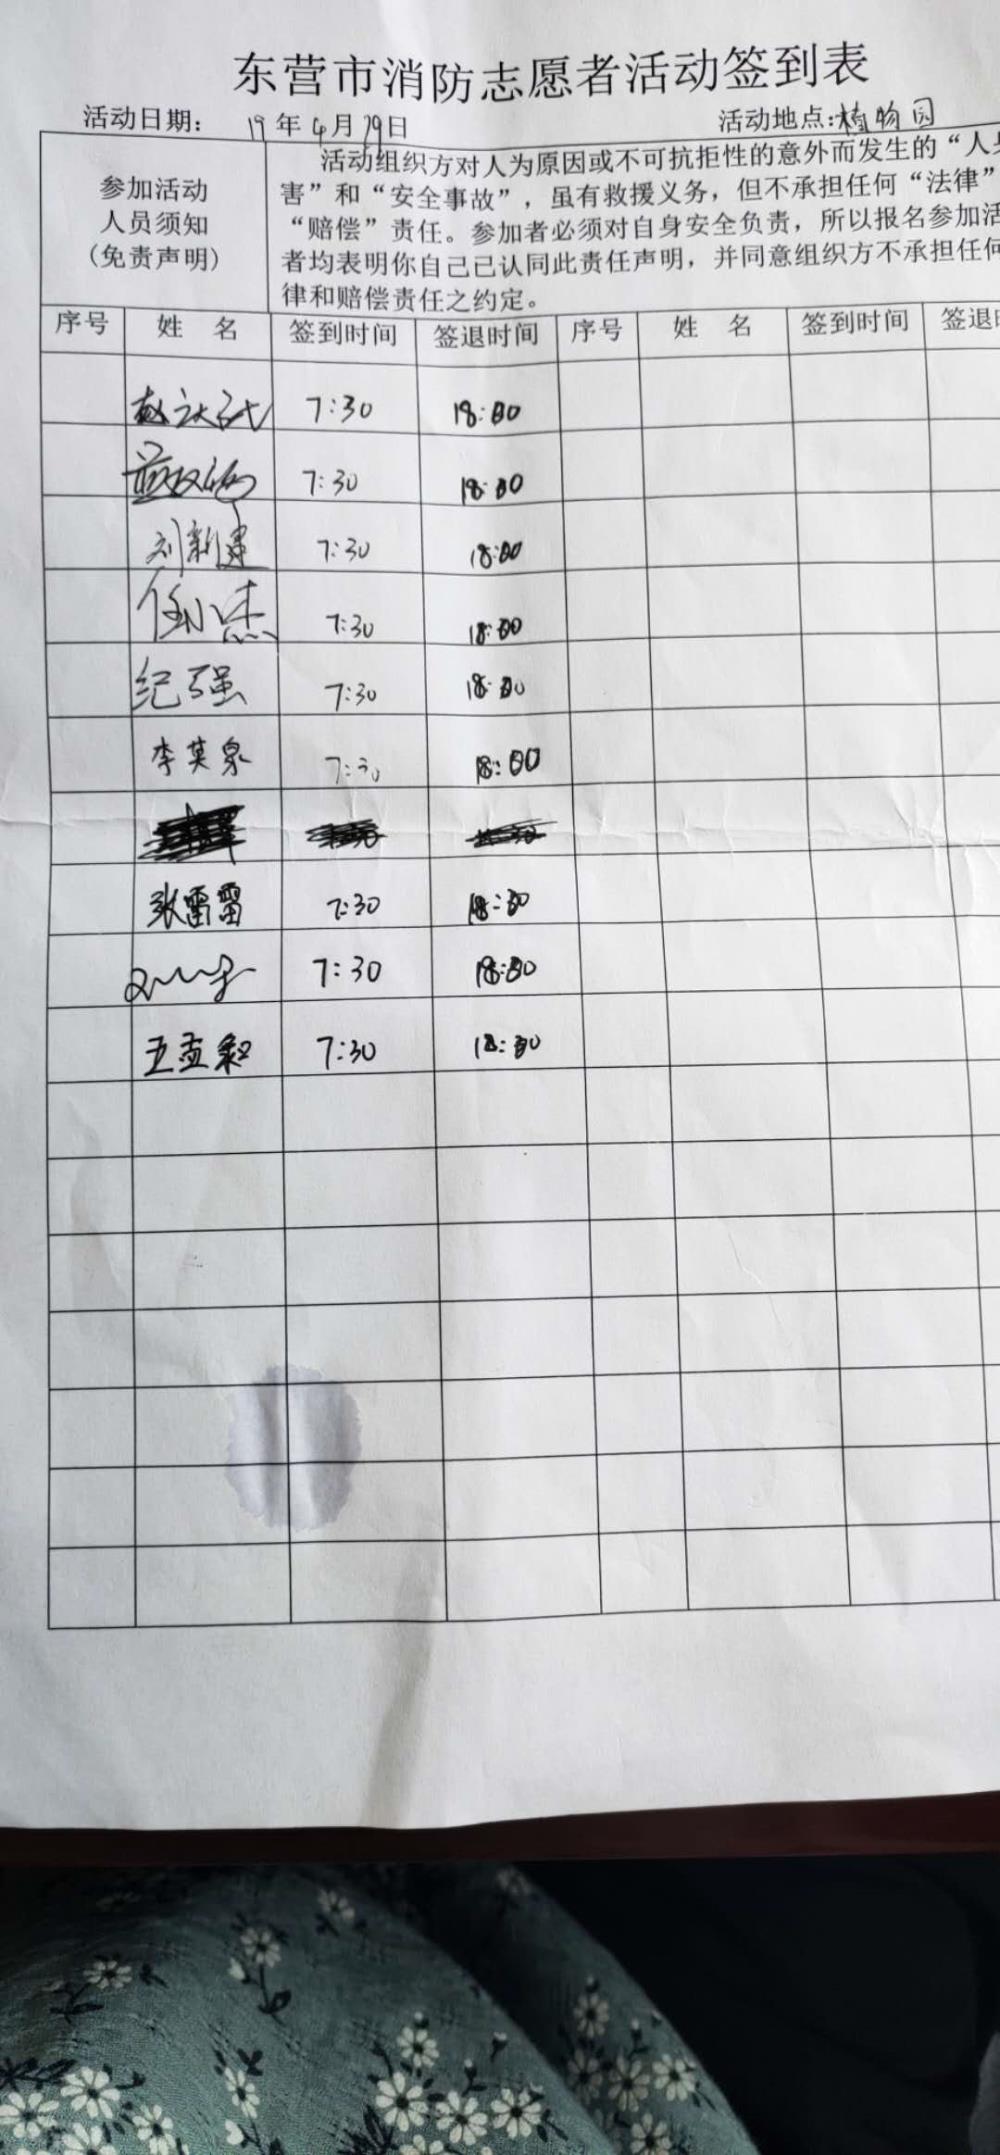 东营市消防志愿者活动签到表
活动日期： 19年4月19日 活动地点:植物园
参加活动
人员须知
(免责声明)
活动组织方对人为原因或不可抗拒性的意外而发生的“人身
害”和“安全事故”，虽有救援义务，但不承担任何“法律”
“赔偿”责任。参加者必须对自身安全负责，所以报名参加活
者均表明你自己已认同此责任声明，并同意组织方不承担任何
律和赔偿责任之约定。
序号 姓 名 签到时间 签退时间 序号 姓 名 签到时间 签退时
7:30 18:00
7:30 18:00
刘新建 7:30 18:00
任小杰 7:30 18:00
纪强 7:30 18:00
李英泉 7:30 18:00
张雷雷 7:30 18:30
7:30 18:00
王孟 7:30 18:30